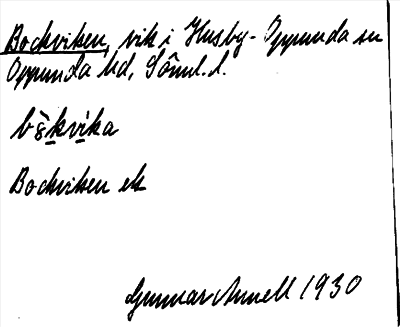 Bockviken, vik i Husby-Oppunda sn
Oppunda hd, Söml. l.
bòkvika
Bockviken ek
Gunnar Annell 1930